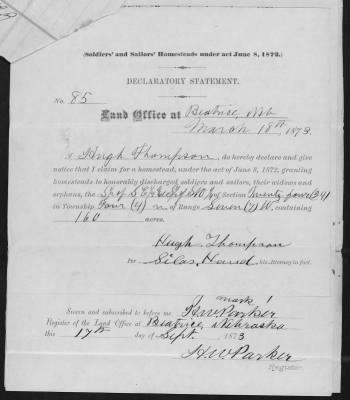 (Soldiers' and Sailors' Homesteads under act June 8, 1872.)
DECLARATORY STATEMENT.
No. 85
Land Office at Beatrice Neb
March 18th, 1873.
I Hugh Thompson do hereby declare and give
notice that I claim for a homestead, under the act of June 8, 1872, granting
homesteads to honorably discharged soldiers and sailors, their widows and
orphans, the of Section Twenty four (24)
in Township Four (4) N of Range Seven (7) W, containing
160 acres.
Hugh Thompson
Per Silas Hand his Attorney in fact.
mark
Sworn and subscribed to before me H W Parker
Register of the Land Office at Beatrice Nebraska
this 17th day of Sept. 1873
H W Parker
Register.